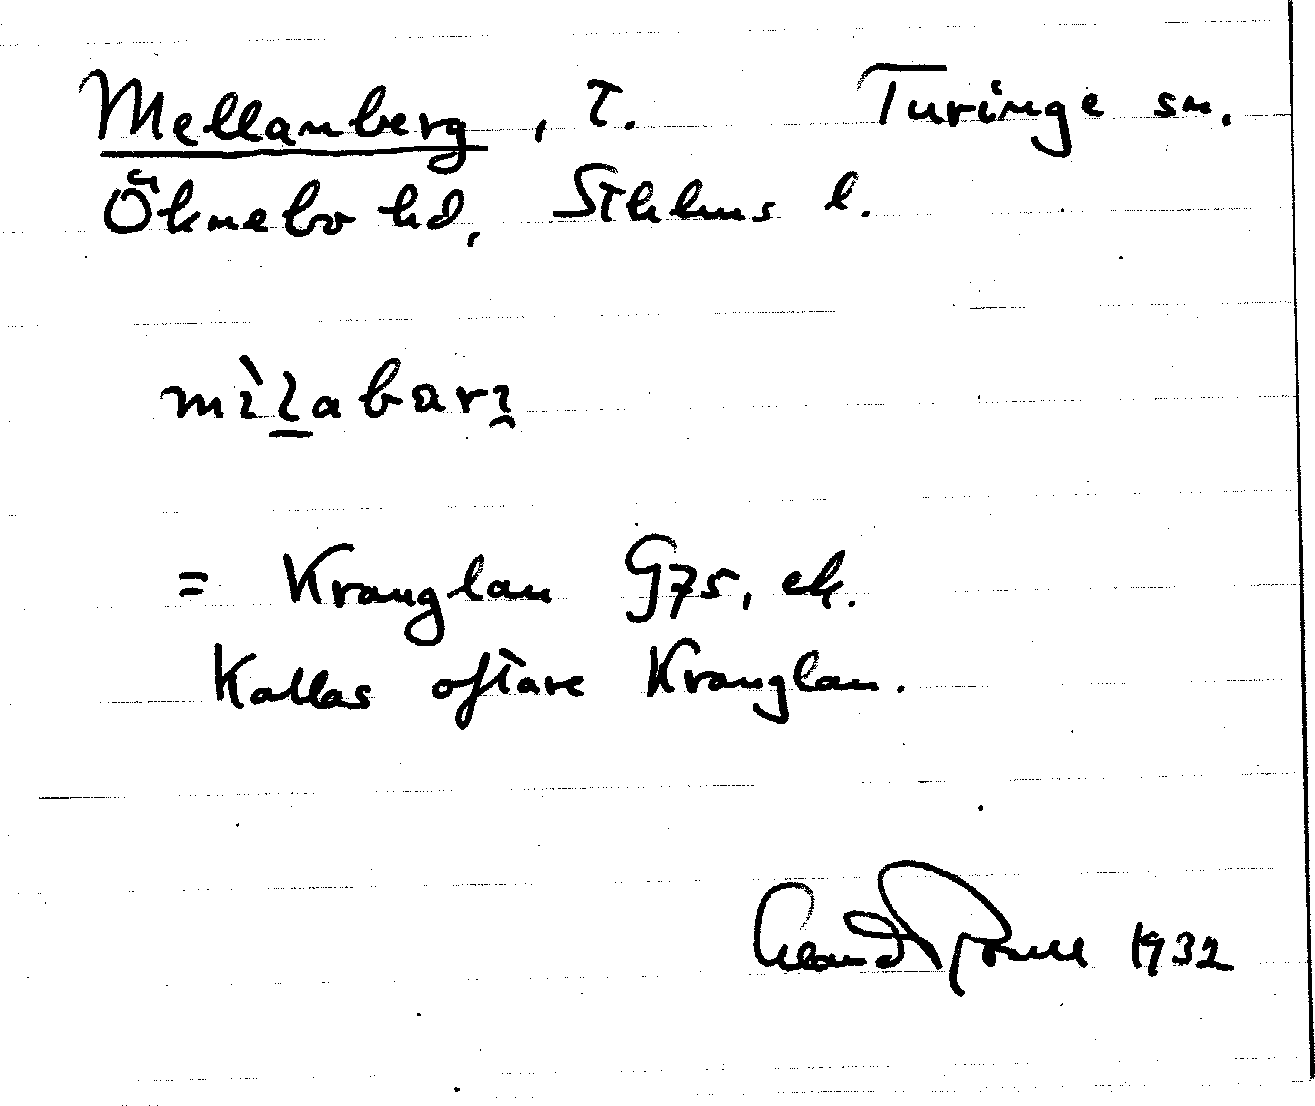 Mellanberg, t. Turinge sn.
Öknebo hd, Sthlms l.
= Kranglan G75, ek.
Kallas oftare Kranglan.
1932